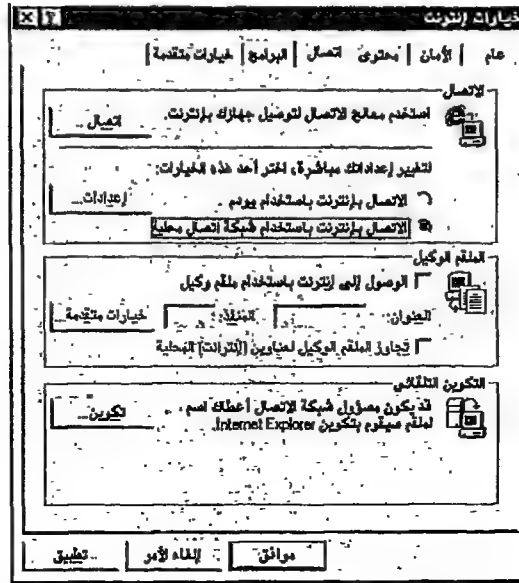 خيارات إنترنت
عام الأمان محتوى اتصال البرامج خيارات متقدمة
الاتصال
استخدم معالج الاتصال لتوصيل جهازك بإنترنت.
اتصال...
لتغيير إعداداتك مباشرة، اختر أحد هذه الخيارات:
الاتصال بإنترنت باستخدام مودم
إعدادات...
الاتصال بإنترنت باستخدام شبكة اتصال محلية
الملقم الوكيل
الوصول إلى إنترنت باستخدام ملقم وكيل
العنوان: المنفذ: خيارات متقدمة...
تجاوز الملقم الوكيل لعناوين (إنترانت) المحلية
التكوين التلقائي
قد يكون مسؤول شبكة الاتصال أعطاك اسم
لملقم سيقوم بتكوين Internet Explorer.
تكوين...
موافق إلغاء الأمر تطبيق